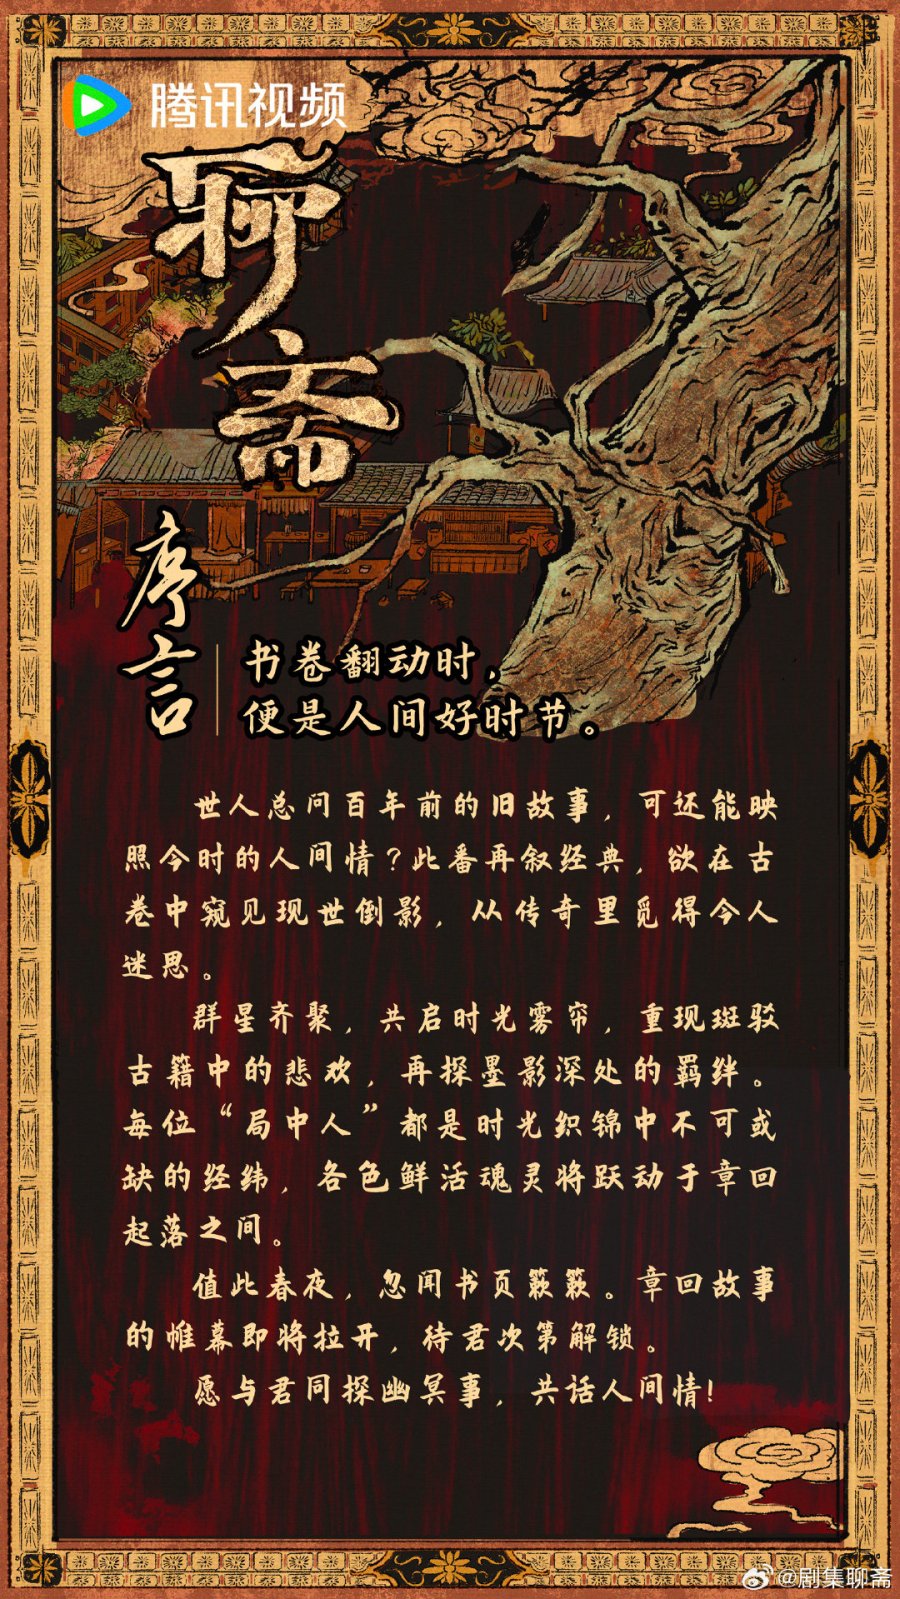 腾讯视频
聊斋
序言
书卷翻动时，
便是人间好时节。
世人总问百年前的旧故事，可还能映
照今时的人间情？此番再叙经典，欲在古
卷中窥见现世倒影，从传奇里觅得今人
迷思。
群星齐聚，共启时光雾帘，重现斑驳
古籍中的悲欢，再探墨影深处的羁绊。
每位“局中人”都是时光织锦中不可或
缺的经纬，各色鲜活魂灵将跃动于章回
起落之间。
值此春夜，忽闻书页簌簌。章回故事
的帷幕即将拉开，待君次第解锁。
愿与君同探幽冥事，共话人间情！
@剧集聊斋